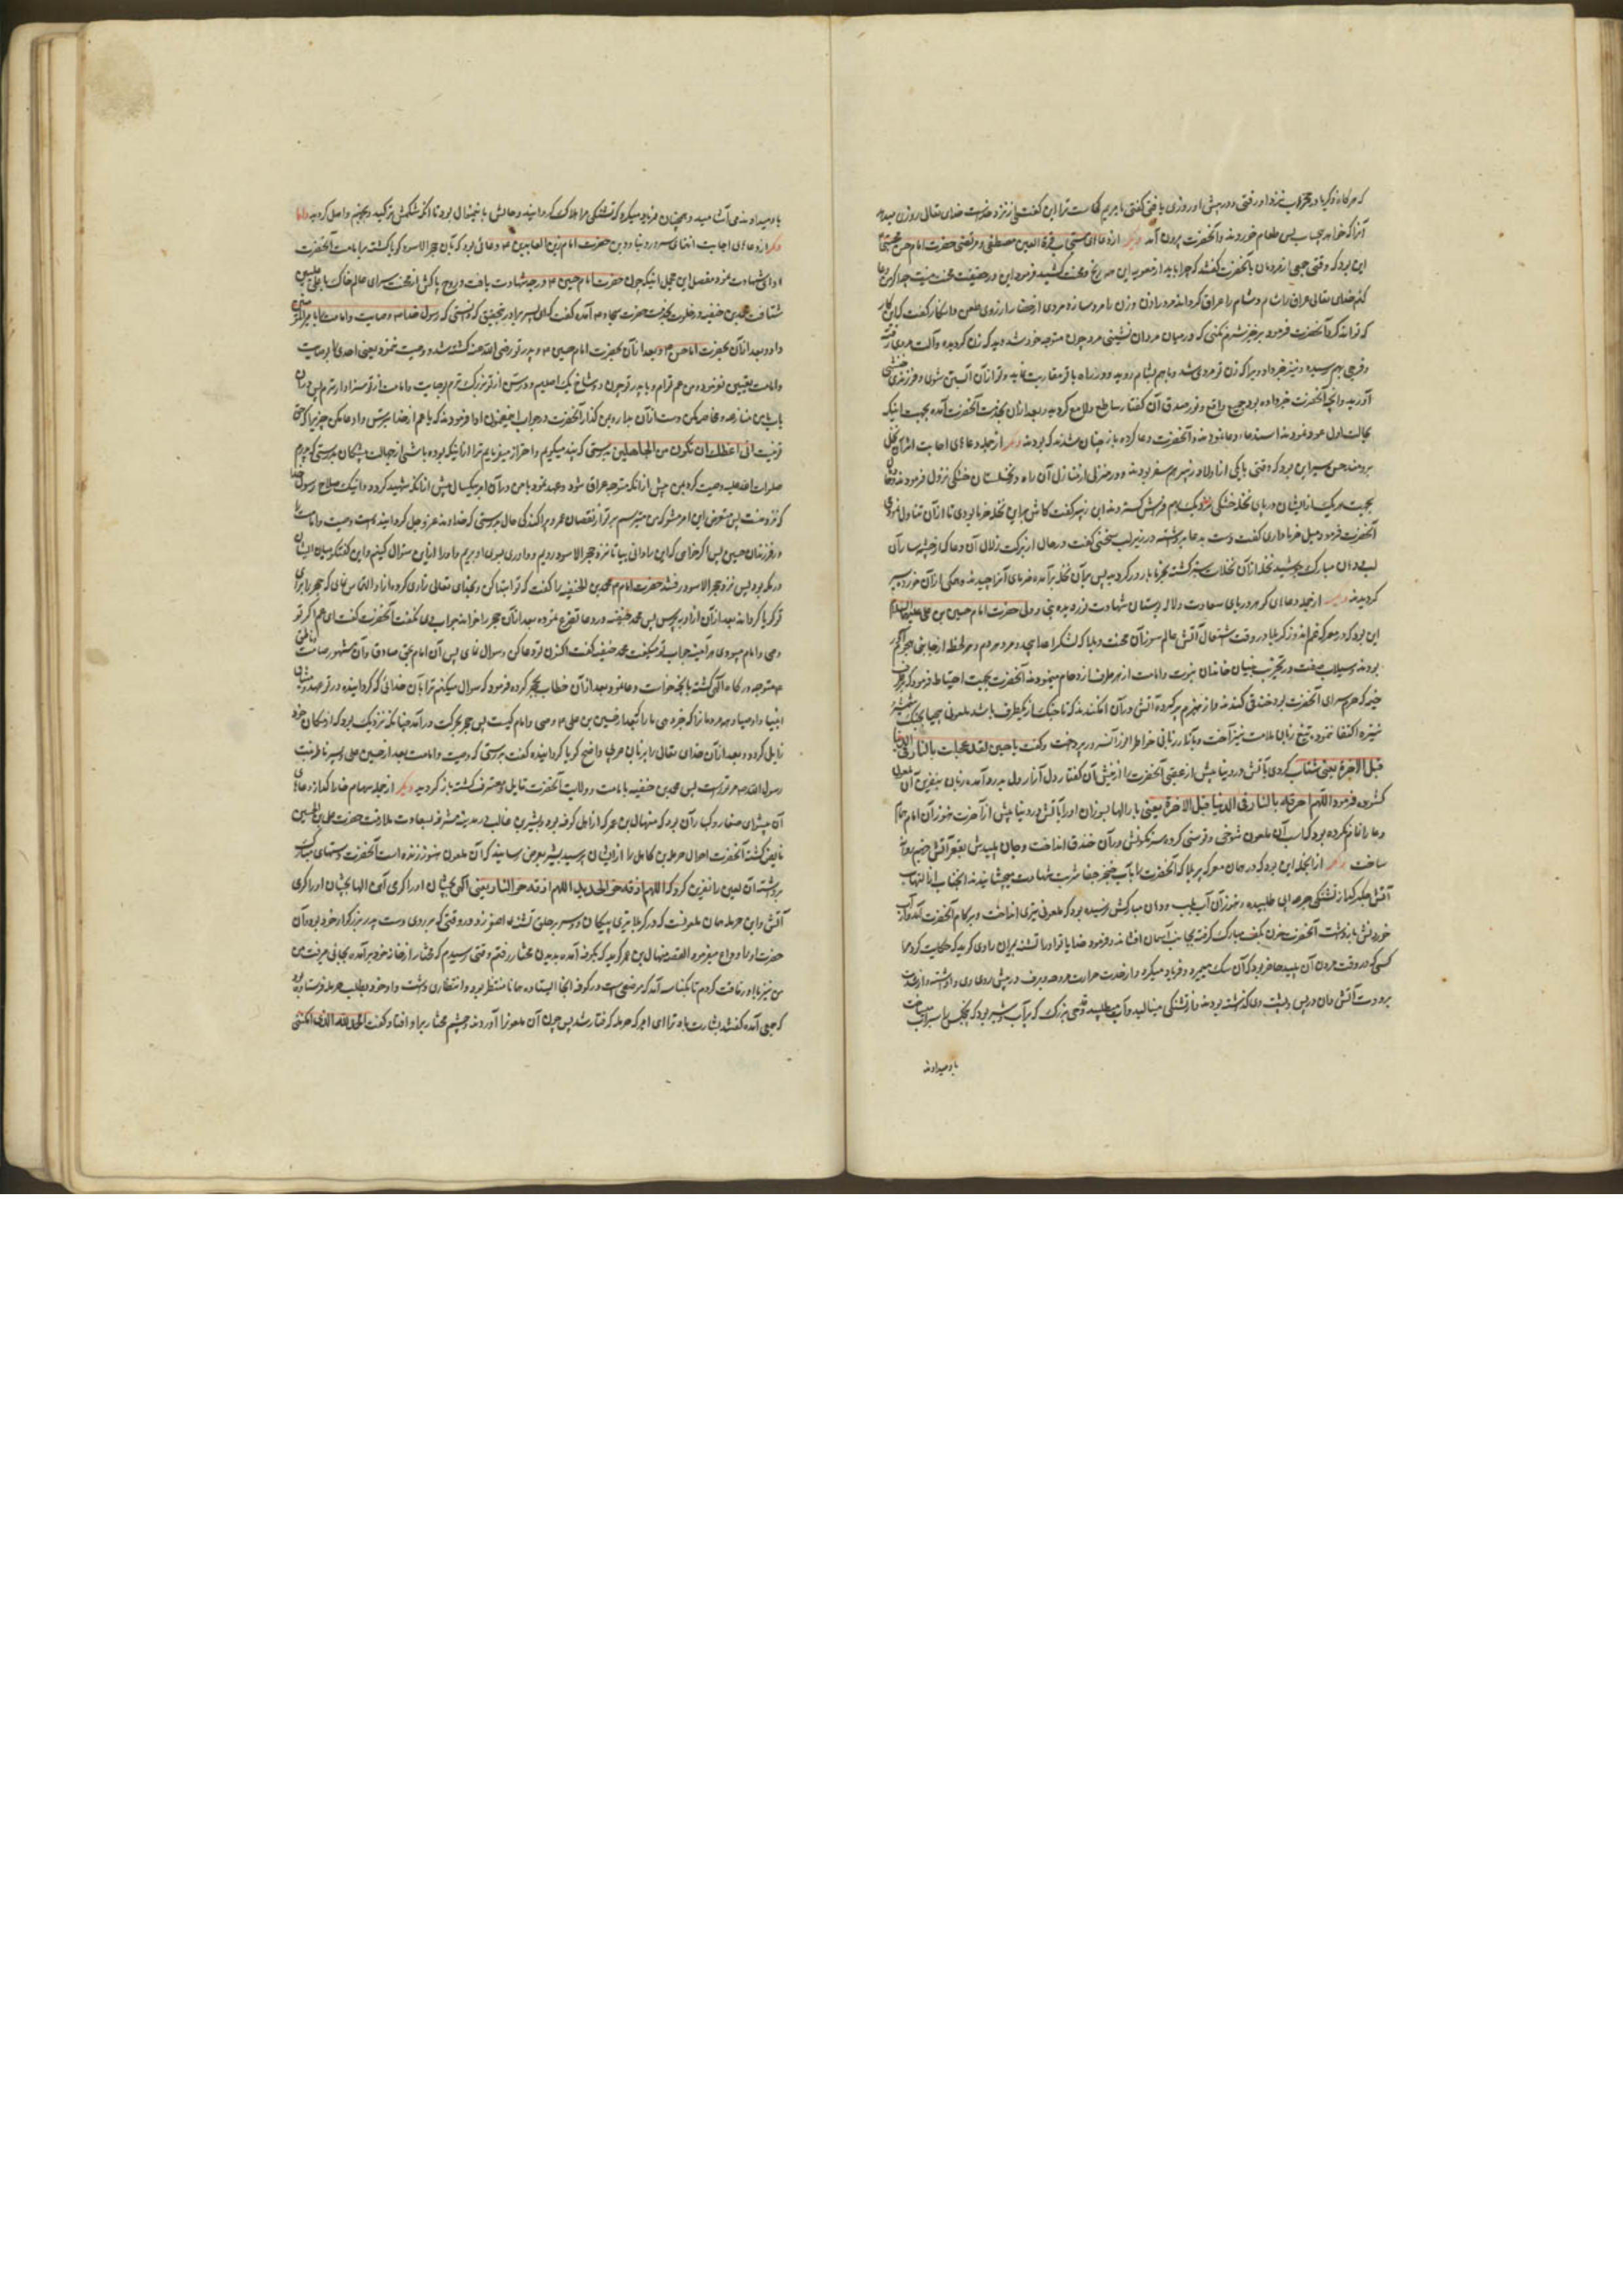 که هرگاه زکریا در محراب نزد او رفتی و در پیش او روزی یافتی گفتی یا مریم کجاست ترا این گفت از نزد حضرت خدای تعالی روزی میدهد
آنرا که خواهد بیحساب پس طعام خوردند و آنحضرت بیرون آمد دیگر از دعاهای مستجاب قرة العین مصطفی و مرتضی حضرت امام حسن مجتبی
این بود که وقتی جمعی از مردمان بآنحضرت گفتند که چرا باید از معویه این همه رنج و محنت کشید فرمود این در حقیقت محنت نیست چه اگر من دعا
کنم خدای تعالی عراق را شام و شام را عراق گرداند و مرد را زن و زن را مرد سازد مردی از حضار از روی طعن و انکار گفت که این کار
که تواند کرد آنحضرت فرمود برخیز شرم نمیکنی که در میان مردان نشینی مرد چون متوجه خود شد دید که زن گردیده و آلت مردی رفته
و فرجی بهم رسیده و نیز خبر داد ویرا که زن تو مردی شد و باهم بشام روید و در راه با تو مقاربت نماید و تو از آن آبستن شوی و فرزندی خنثی
آورید و آنچه آنحضرت خبر داده بود جمیع واقع و نور صدق آن گفتار ساطع و لامع گردید و بعد از آن بخدمت آنحضرت آمده بجهت اینکه
بحالت اول عود نمودند استدعاء دعا نمودند و آنحضرت دعا کرده باز چنان شدند که بودند دیگر از جمله دعاهای اجابت اثر آن نخل
برومند چمن این بود که وقتی با یکی از اولاد زبیر هم سفر بودند و در منزلی از منازل آن راه در نخلستان خشکی نزول فرمودند و
بجهت هر یک از ایشان در پای نخله خشکی نزدیک بهم فرش گستردند ابن زبیر گفت کاش بر این نخله خرما بودی تا از آن تناول نمودی
آنحضرت فرمود میل خرما داری گفت دست بدعا برداشته در زیر لب سخنی گفت در حال از برکت زلال آن دعا که از چشمه سار آن
لب و دهان مبارک جوشید نخله از آن نخلات سبز گشته بخرما بارور گردید پس بر آن نخله برآمده خرمای آنرا چیدند و همگی از آن خورده سیر
گردیدند دیگر از جمله دعاهای گوهر دریای سعادت و لاله بستان شهادت حضرت امام حسین بن علی علیهما السلام
این بود که در معرکه غم اندوز کربلا در وقت اشتعال آتش عالم سوز آن محنت و بلا که لشکر اعدا پی در پی و مردم و هر لحظه از جا
بودند و سیلاب صفت در تخریب بنیان خاندان نبوت و امامت از هر طرف ازدحام مینمودند آنحضرت بجهت احتیاط فرمود که بر طرف
خیمه که حرم سرای آنحضرت بود خندقی کندند و از هیزم پر کرده آتش در آن افکندند که تا جنگ از یکطرف باشد ملعونی بیحیا بجنگ شمشیر و
نیزه اکتفا ننمود تیغ زبان ملامت نیز آخت و گفت یا حسین لقد عجلت بالنار فی الدنیا
قبل الاخرة یعنی شتاب کردی بآتش در دنیا پیش از عقبی آنحضرت را از نیش آن گفتار دل آزار دل بدرد آمده زبان بنفرین آن ملعون
گشوده فرمود اللهم احرقه بالنار فی الدنیا قبل الاخرة یعنی بار الها بسوزان او را بآتش در دنیا پیش از آخرت هنوز آن امام همام
دعا را تمام نکرده بود که اسب آن ملعون شوخی و توسنی کرده سرنگونش در آن خندق انداخت و جان پلیدش بقعر آتش جهنم
ساخت دیگر از آنجمله این بود که در همان معرکه پر بلا که آنحضرت را بآب خنجر جفا شربت شهادت میچشانیدند آنجناب از التهاب
آتش جگر که از تشنگی جرعه آبی طلبیده و هنوز آن آب بلب و دهان مبارکش نرسیده بود که ملعونی تیری انداخت و بر کام آنحضرت آمد و از آب
خوردنش باز داشت آنحضرت خون بکف مبارک گرفته بجانب آسمان افشاند و فرمود خدایا تو او را تشنه بمیران راوی گوید که حکایت کرد مرا
کسی که در وقت مردن آن پلید حاضر بود که آن سگ میمرد و فریاد میکرد و از شدت حرارت مروحه و برف در پیش روی وی داشتند و از شدت
برودت آتش دان در پس پشت وی گذاشته بودند و از تشنگی مینالید و آب میطلبید قدحی بزرگ که پر آب و شیر بود که پنج کس را سیراب میساخت
باو میدادند
باو میدادند می آشامید و همچنان فریاد میکرد که تشنگی مرا هلاک گردانید و حالش باینمنوال بود تا آنکه شکمش ترکید و بجهنم واصل گردید
دیگر از دعاهای اجابت انتمای سرور دنیا و دین حضرت امام زین العابدین دعائی بود که بآن حجر الاسود گویا گشته بر امامت آنحضرت
ادای شهادت نمود مفصل این مجمل آنکه چون حضرت امام حسین درجه شهادت یافت و روح پاکش از محنت سرای عالم خاک باعلی علیین
شتافت محمد بن حنفیه در خلوت بخدمت حضرت سجاد آمده گفت که ای پسر برادر بتحقیق که دانستی که رسول خدا وصایت و امامت را بامیر المؤمنین
داد و بعد از آن بحضرت امام حسن و بعد از آن بحضرت امام حسین و پدر تو رضی الله عنه کشته شد و وصیت ننمود یعنی احدی را بوصایت
و امامت تعیین نفرمود و من عم توام و با پدر تو چون دو شاخ یک اصلیم و در سن از تو بزرگترم بوصایت و امامت از تو سزاوارترم پس در آن
باب با من منازعه و مخاصمه مکن حضرت در جواب فرمودند که یا عم از خدا بترس و ادعا مکن چیزیرا که حق
تو نیست انی اعظک ان تکون من الجاهلین بدرستی که پند میگویم و احتراز میفرمایم ترا از اینکه بوده باشی از جهالت پیشگان بدرستی که پدرم
صلوات الله علیه وصیت کرد بمن پیش از آنکه متوجه عراق شود و عهد نمود با من در آن امر بیکساعت پیش از آنکه شهید گردد و اینک سلاح رسول خدا
که نزد منست پس متعرض این امر مشو که من میترسم بر تو از نقصان عمر و پراکندگی حال بدرستی که خداوند عز و جل گردانیده است وصیت و امامت را
در فرزندان حسین پس اگر خواهی که این را دانی بیا تا نزد حجر الاسود رویم و داوری بسوی او بریم و او را از این سئوال کنیم و این گفتگو میان ایشان
در مکه بود پس نزد حجر الاسود رفتند حضرت امام محمد بن الحنفیه را گفت که تو ابتدا کن و بخدای تعالی زاری کرده از او التماس نمای که حجر را برای
تو گویا گرداند بعد از آن از او بپرس پس محمد حنفیه در دعا تضرع نموده بعد از آن حجر را خواند جواب وی نگفت آنحضرت گفت ای عم اگر تو
وصی و امام میبودی هر آینه جواب تو میگفت محمد حنفیه گفت اکنون تو دعا کن و سوال نمای پس آن امام بحق صادق و آن مشهور صامت ناطق
متوجه درگاه الهی گشته بآنچه خواست دعا نمود بعد از آن خطاب بحجر کرده فرمود که سوال میکنم ترا بآن خدائی که گردانیده در تو عهد و پیمان
انبیا و اوصیا و همه مردمان را که خبر دهی ما را که بعد از حسین بن علی وصی و امام کیست پس حجر بحرکت درآمد چنانکه نزدیک بود که از مکان خود
زایل گردد و بعد از آن خدای تعالی او را بزبان عربی واضح گویا گردانیده گفت بدرستی که وصیت و امامت بعد از حسین علی پسر فاطمه بنت
رسول الله مر تو راست پس محمد بن حنفیه بامامت و ولایت آنحضرت قایل و معترف گشته باز گردید دیگر از جمله سهام قضا گذار دعاهای
آن پیشوای صغار و کبار آن بود که منهال بن عمر که از اهل کوفه بود در مدینه مشرفه بسعادت ملازمت حضرت علی بن الحسین
فایض گشته آنحضرت احوال حرمله بن کاهل را از ایشان پرسید بشر بعرض رسانید که آن ملعون هنوز زنده است آنحضرت دستهای مبارک
برداشته آن لعین را نفرین کرد که اللهم اذقه حر الحدید اللهم اذقه حر النار یعنی الهی بچشان او را گرمی آهن الها بچشان او را گرمی
آتش و این حرمله همان ملعونست که در کربلا تیری بر حلق تشنه علی اصغر زد در وقتی که بر روی دست پدر بزرگوار خود بود و آن
حضرت او را وداع میفرمود القصه منهال بن عمر گوید که بکوفه آمده بدیدن مختار رفتم وقتی رسیدم که مختار از خانه خود برآمده بجائی میرفت من
نیز با او رفاقت کردم تا بکناسه آمد که موضعی است در کوفه آنجا ایستاده همانا منتظر بود و انتظاری داشت و او خود بطلب حرمله فرستاده بود
که جمعی آمده گفتند بشارت باد ترا ای امیر که حرمله گرفتار شد پس چون آن ملعونرا آوردند چشم مختار بر او افتاد و گفت الحمد لله الذی امکننی